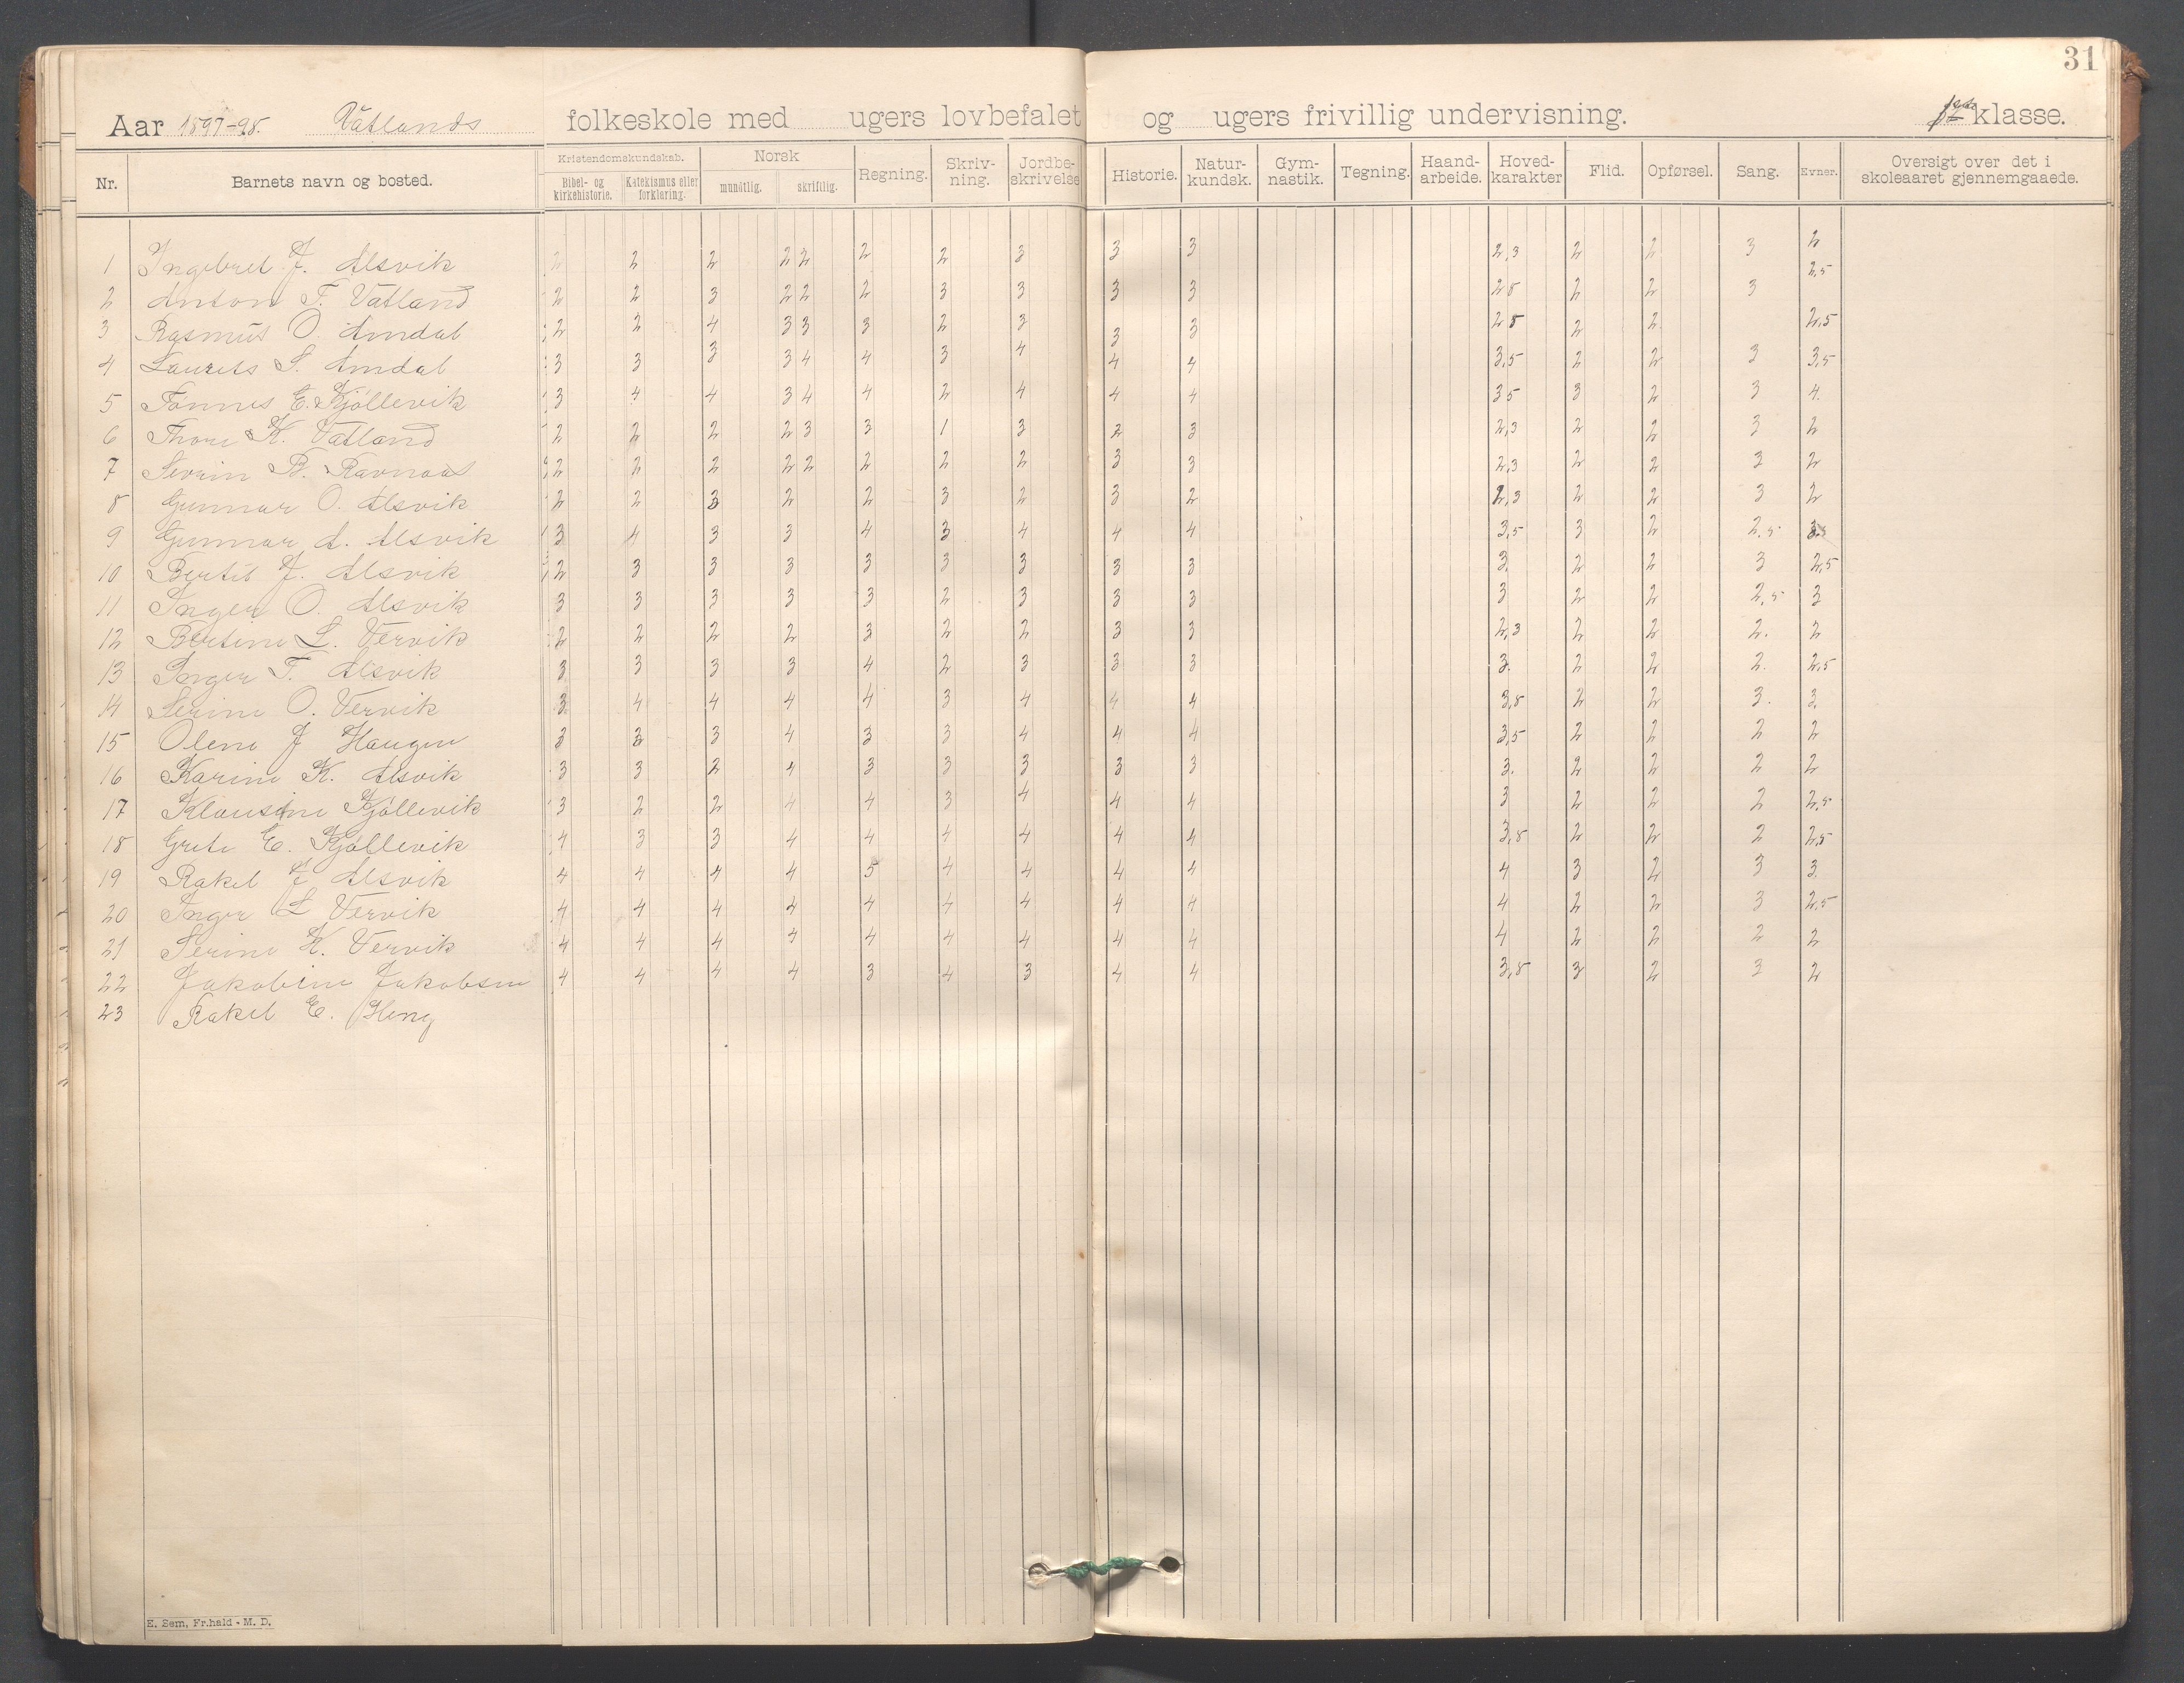 31
Aar 1897-98. Vatlands folkeskole med ugers lovbefalet og ugers frivillig undervisning. klasse.
Nr. Barnets navn og bosted. Kristendomskundskab. Bibel- og kirkehistorie. Katekismus eller forklaring. Norsk mundtlig. skriftlig. Regning. Skriv-ning. Jordbe-skrivelse Historie. Natur-kundsk. Gym-nastik. Tegning. Haand-arbeide. Hoved-karakter Flid. Opførsel. Sang. Evner. Oversigt over det i skoleaaret gjennemgaaede.
1 Ingebret J. Alsvik 2 2 2 2 2 2 2 3 3 3 2,3 2 2 3 2
2 Anton T. Vatland 2 2 3 2 2 2 3 3 3 3 28 2 2 3 2,5
3 Rasmus O. Amdal 2 2 4 3 3 3 2 3 3 3 28 2 2 2,5
4 Laurits S. Amdal 3 3 3 3 4 4 3 4 4 4 3,5 2 2 3 3,5
5 Tønnes E. Kjøllevik 3 4 4 3 4 4 2 4 4 4 35 3 2 3 4.
6 Thore K. Vatland 2 2 2 2 3 3 1 3 2 3 2,3 2 2 3 2
7 Sevrin B. Ravnaas 2 2 2 2 2 2 2 2 3 3 2,3 2 2 3 2
8 Gunnar O. Alsvik 2 2 3 2 2 3 2 3 2 2,3 2 2 3 2
9 Gunnar A. Alsvik 3 4 3 3 4 3 4 4 4 3,5 3 2 2,5
10 Bertil J. Alsvik 2 3 3 3 3 3 3 3 3 3. 2 2 3 2,5
11 Inger O. Alsvik 3 3 3 3 3 2 3 3 3 3 2 2 2,5 3
12 Bertine L. Vervik 2 2 2 2 3 2 2 3 3 2,3 2 2 2. 2
13 Inger T. Alsvik 3 3 3 3 4 2 3 3 3 3. 2 2 2. 2,5
14 Serine O. Vervik 3 4 4 4 4 3 4 4 4 3,8 2 2 3. 3.
15 Olene J Haugen 3 3 3 4 3 3 4 4 4 3,5 2 2 2 2
16 Karine K. Alsvik 3 3 2 4 3 3 3 3 3 3. 2 2 2 2
17 Klausine Kjøllevik 3 2 2 4 4 3 4 4 4 3 2 2 2 2,5
18 Grete E. Kjøllevik 4 3 3 4 4 4 4 4 4 3,8 2 2 2 2,5
19 Rakel J Alsvik 4 4 4 4 5 4 4 4 4 4 3 2 3 3.
20 Inger L Vervik 4 4 4 4 4 4 4 4 4 4 2 2 3 2,5
21 Serine K. Vervik 4 4 4 4 4 4 4 4 4 4 2 2 2 2
22 Jakobine Jakobsen 4 4 4 4 3 4 3 4 4 3,8 3 2 3 2
23 Rakel E.
E. Sem, Fr.hald - M. D.